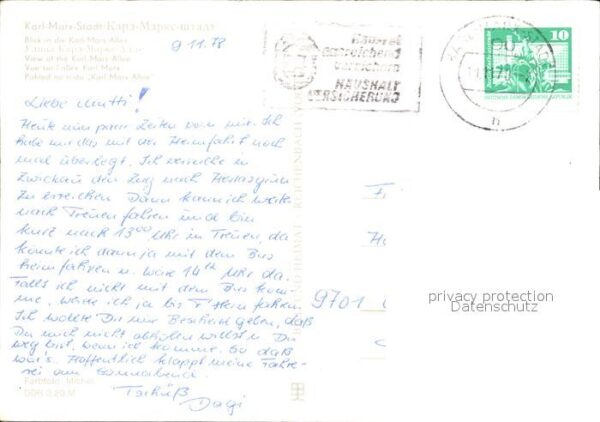 Karl-Marx-Stadt Карл-Маркс-штадт
Blick in die Karl-Marx-Allee
View of the Karl-Marx-Allee
Vue sur l'allée Karl Marx
9.11.78
ausreichend
versichern
HAUSHALT
VERSICHERUNG
10
DEUTSCHE DEMOKRATISCHE REPUBLIK
90
h
Liebe Mutti!
Heute nun paar Zeilen von mir. Ich
habe mir das mit der Heimfahrt noch
mal überlegt. Ich versuche in
Zwickau den Zug nach Herlasgrün
zu erreichen. Dann kann ich weiter
nach Treuen fahren und bin
kurz nach 13⁰⁰ Uhr in Treuen, da
könnte ich dann ja mit dem Bus
heimfahren u. wäre 14 Uhr da.
Falls ich nicht mit dem Bus kom-
me, werde ich ja bis fahren.
Ich wollte Dir nur Bescheid geben, daß
Du mich nicht abholen willst u. Du
weg bist, wenn ich komme. So das
wär's. Hoffentlich klappt meine Fahre-
rei am Sonnabend.
Tschüß
Dagi
9701
privacy protection
Datenschutz
Farbfoto:
DDR 0,20 M